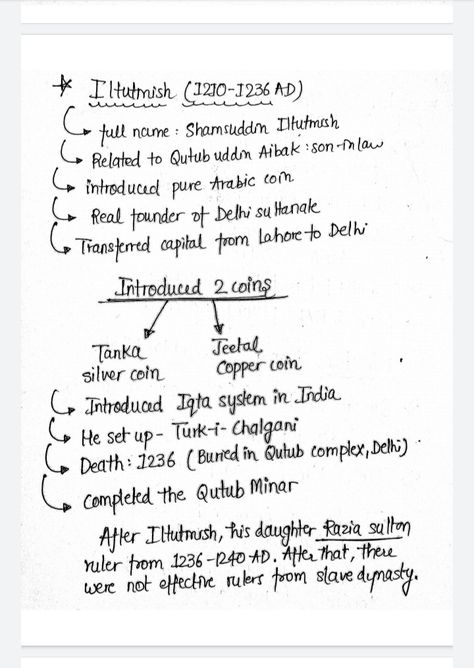 * Iltutmish (1210-1236 AD)
full name : Shamsuddin Iltutmish
Related to Qutub uddin Aibak : son-in law
introduced pure Arabic coin
Real founder of Delhi sultanate
Transferred capital from Lahore to Delhi
Introduced 2 coins
Tanka
silver coin
Jeetal
Copper coin
Introduced Iqta system in India
He set up - Turk-i-Chalgani
Death : 1236 (Buried in Qutub complex, Delhi)
completed the Qutub Minar
After Iltutmish, his daughter Razia sultan
ruler from 1236-1240 AD. After that, there
were not effective rulers from slave dynasty.